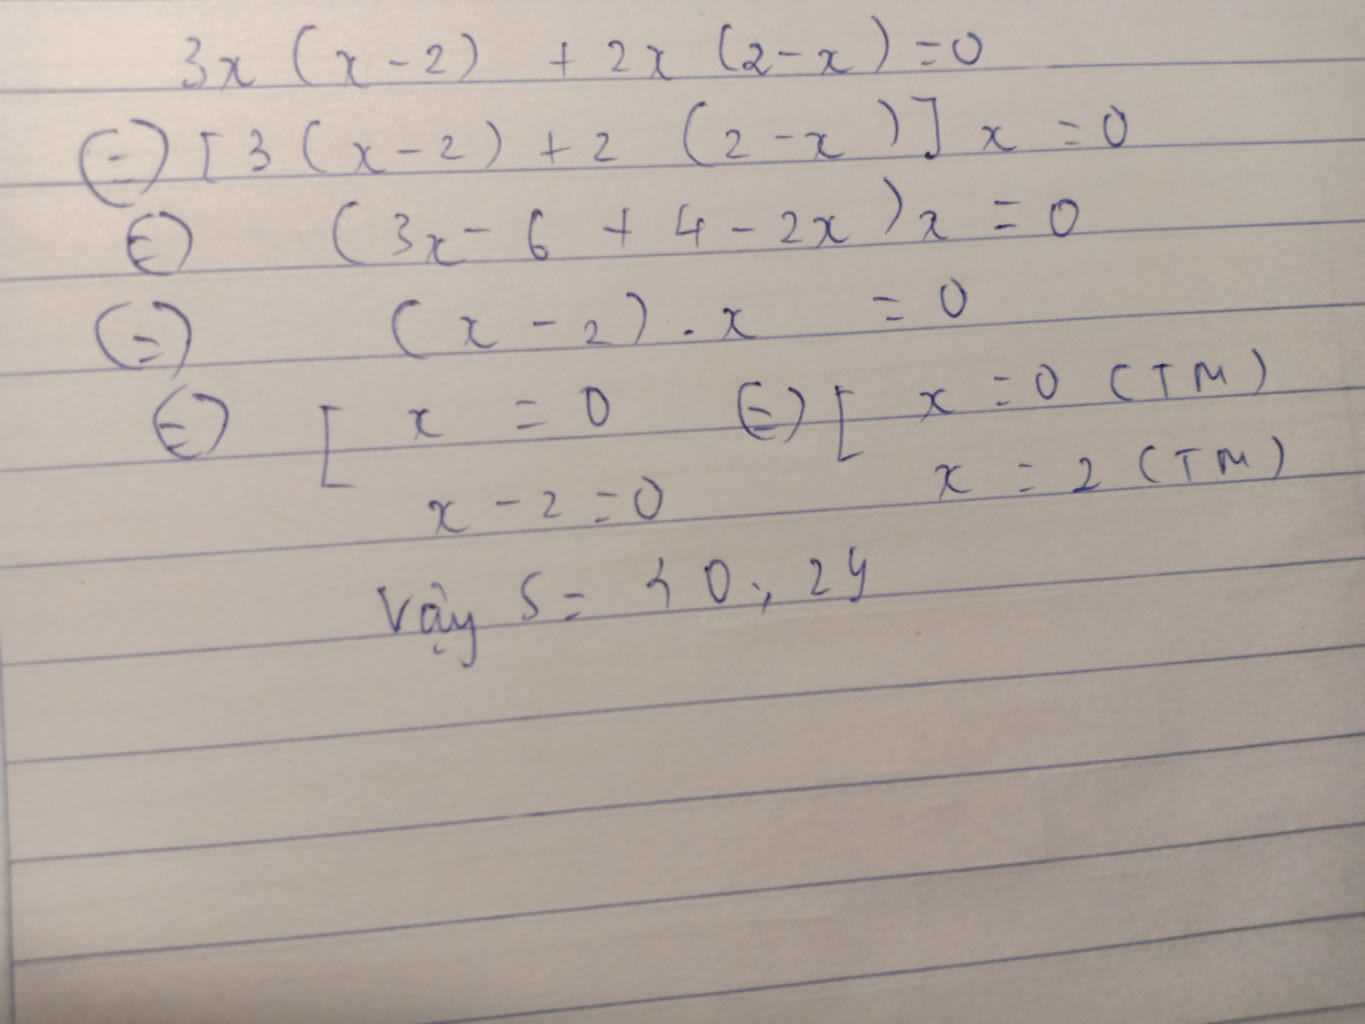 3x (x-2) + 2x (2-x) = 0
(=) [3 (x-2) + 2 (2-x)] x = 0
(=) (3x - 6 + 4 - 2x) x = 0
(=) (x - 2) . x = 0
(=) [ x = 0 (=) [ x = 0 (TM)
x - 2 = 0 x = 2 (TM)
Vậy S = {0; 2}